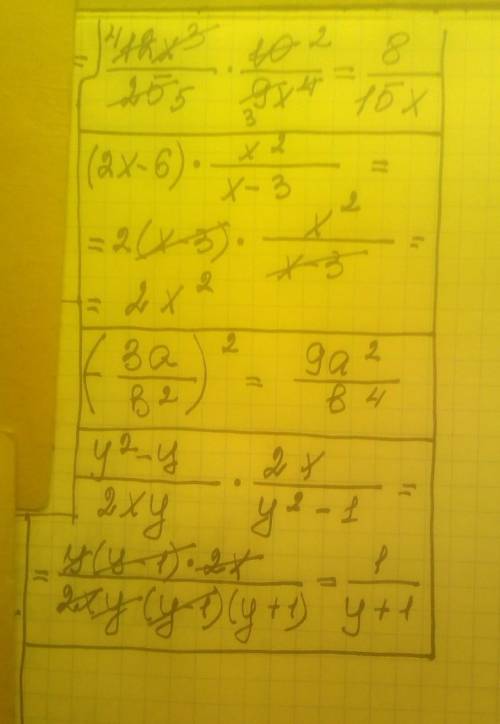 = \frac{^4 12x^3}{25 5} · \frac{10 ^2}{_3 9x^4} = \frac{8}{15x}
(2x-6) · \frac{x^2}{x-3} =
= 2(x-3) · \frac{x^2}{x-3} =
= 2x^2
(-\frac{3a}{b^2})^2 = \frac{9a^2}{b^4}
\frac{y^2-y}{2xy} · \frac{2x}{y^2-1} =
= \frac{y(y-1)·2x}{2xy(y-1)(y+1)} = \frac{1}{y+1}